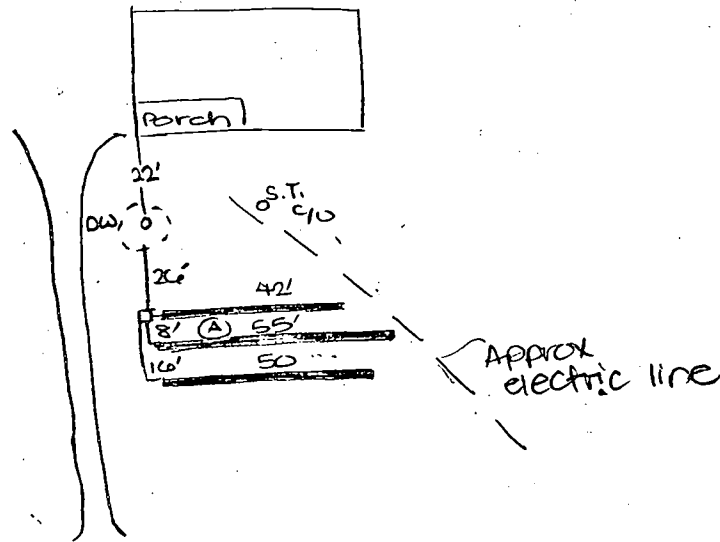 Porch
22'
S.T.
c/o
DW
26'
42'
8' A 55'
16' 50
Approx
electric line